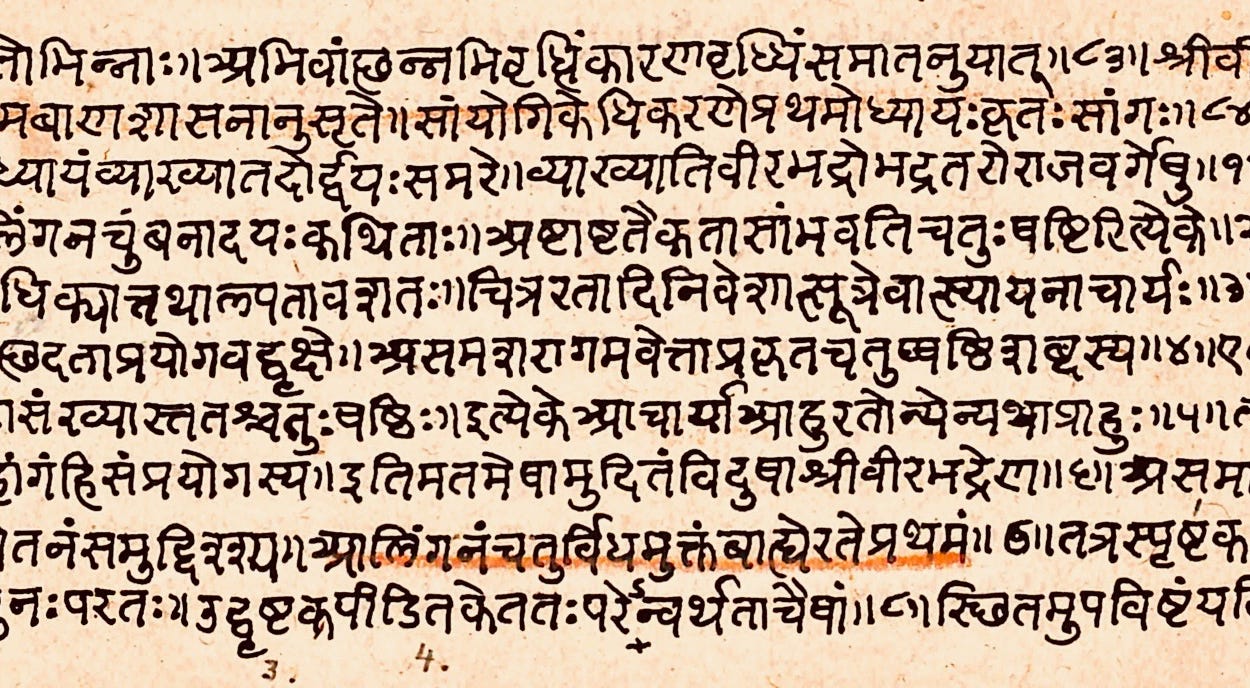 तोभिन्नाः॥अभिवांछन्नभिवृध्धिंकारणवृध्धिंसमातनुयात्॥८३॥श्रीवी
मबाणशासनानुसृतै॥सांयोगिकेधिकरणेप्रथमोध्यायःकृतःसांगः॥८४
ध्यायंव्याख्यातदोर्द्वयःसमरे॥व्याख्यातिवीरभद्रोभद्रतरोराजवर्गेषु॥१
लिंगनचुंबनादयःकथिताः॥अष्टाष्टतैकतासांभवतिचतुःषष्टिरित्येके॥२
धिक्यात्तथाल्पतावशतः॥चित्ररतादिनिवेशात्सूत्रेवात्स्यायनाचार्यः॥३
छदताप्रयोगवद्वृक्षे॥असमशरागमवेत्ताप्रकृतचतुष्षष्ठिशब्दस्य॥४॥ए
संख्यास्ततश्चतुःषष्ठिः॥इत्येकेआचार्याआहुरतोन्येन्यथाप्राहुः॥५॥त
गंहिसंप्रयोगस्य॥इतिमतमेषामुदितंविदुषाश्रीवीरभद्रेण॥६॥असमा
तनंसमुद्दिश्य॥आलिंगनंचतुर्विधमुक्तंबाह्येरतेप्रथमं॥७॥तत्रस्पृष्टंक
नःपरतः॥उद्घृष्टकपीडितकेततःपरेऽन्वर्थताचैषां॥८॥स्थितमुपविष्टंय
3. 4.